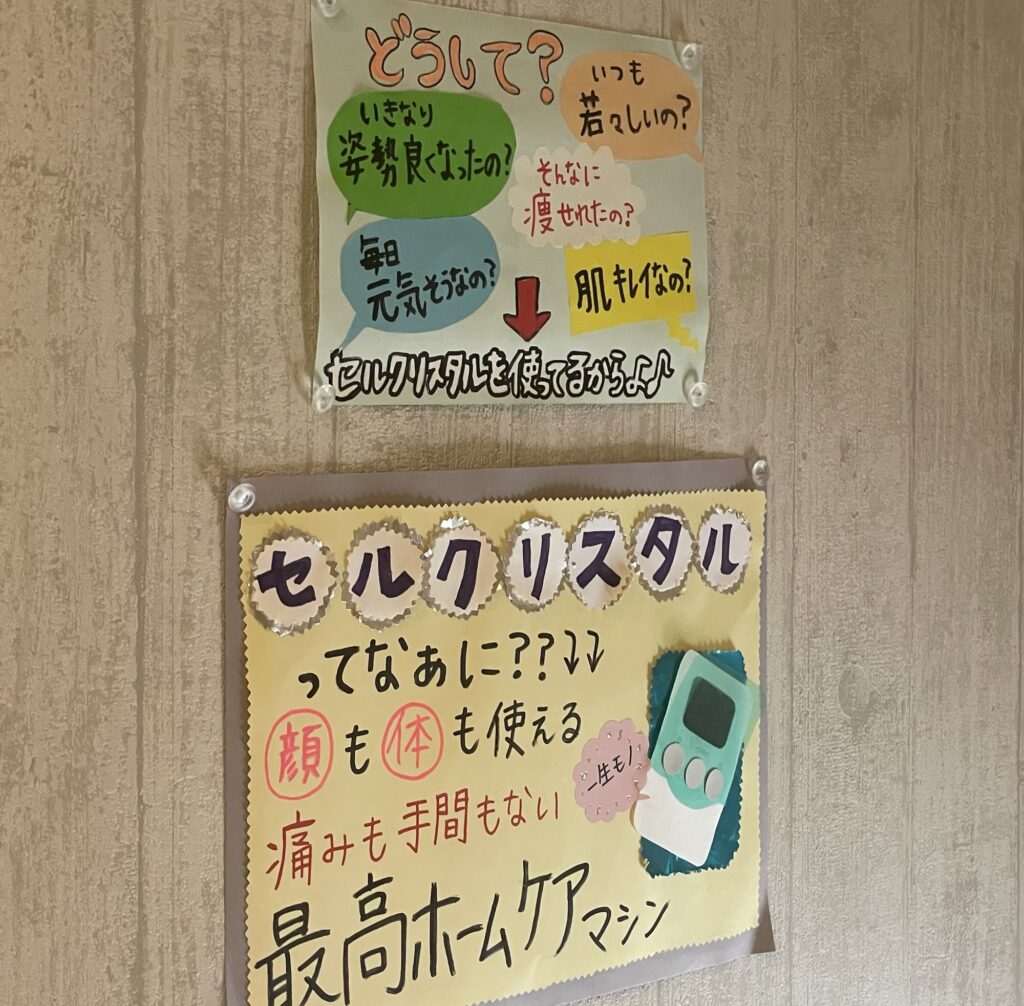 どうして?
いつも
若々しいの?
いきなり
姿勢良くなったの?
そんなに
痩せれたの?
毎日
元気そうなの?
肌キレイなの?
セルクリスタルを使ってるからよ♪
セルクリスタル
ってなぁに??↓↓
顔も体も使える
一生モノ
痛みも手間もない
最高ホームケアマシン